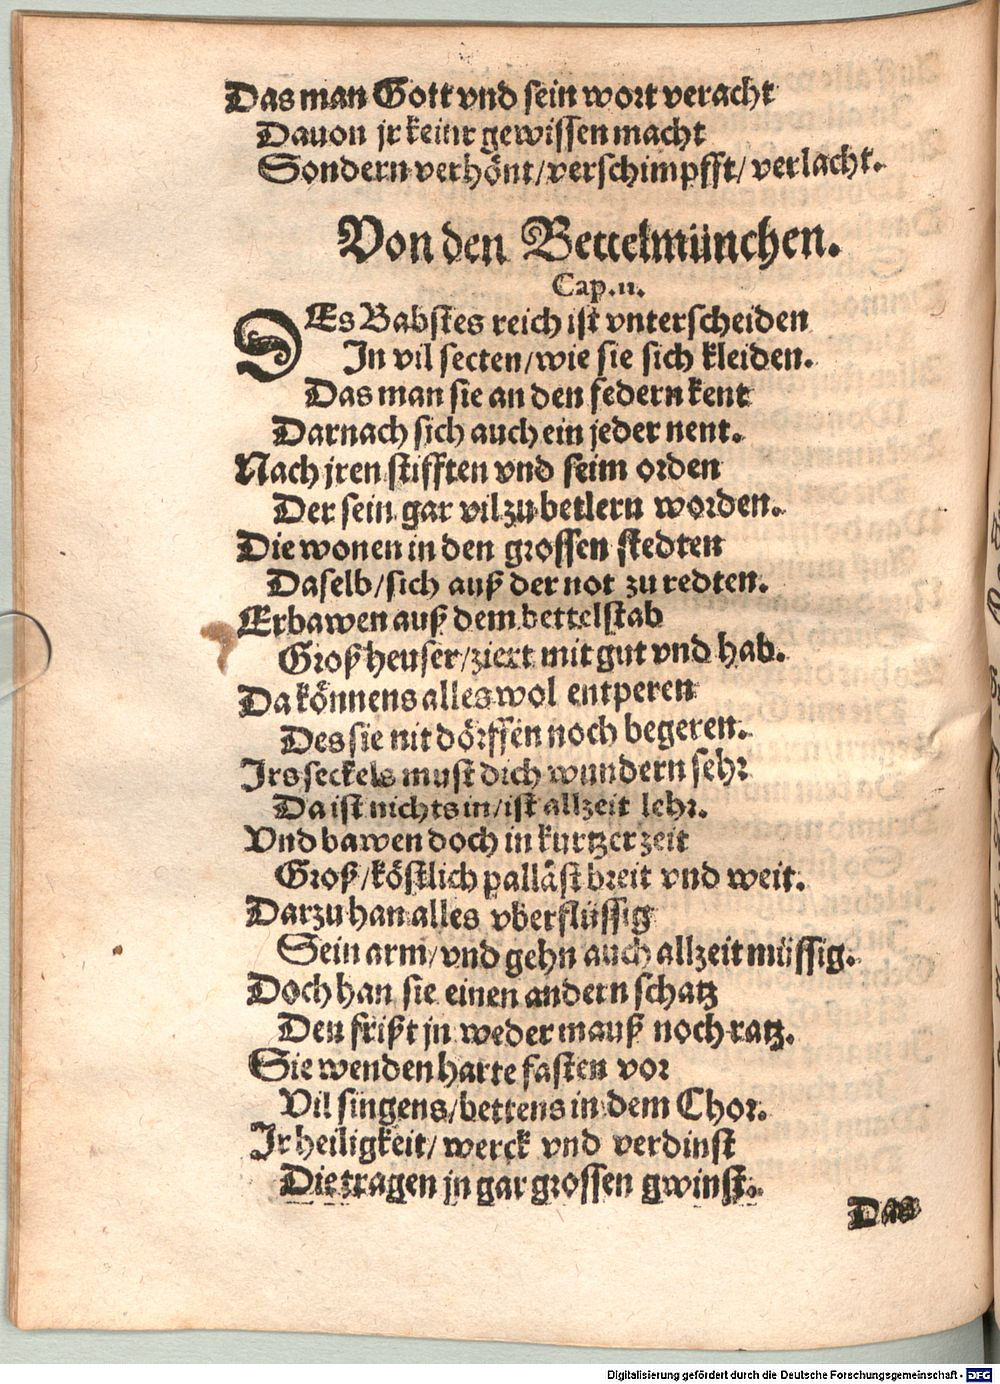 Das man Gott vnd sein wort veracht
Dauon jr keinr gewissen macht
Sondern verhönt/verschimpfft/verlacht.
Von den Bettelmünchen.
Cap.11.
DEs Babstes reich ist vnterscheiden
In vil secten/wie sie sich kleiden.
Das man sie an den federn kent
Darnach sich auch ein jeder nent.
Nach jren stifften vnd seim orden
Der sein gar vil zu betlern worden.
Die wonen in den grossen stedten
Daselb/sich auß der not zu redten.
Erbawen auß dem bettelstab
Groß heuser/ziert mit gut vnd hab.
Da könnens alles wol entperen
Des sie nit dörffen noch begeren.
Irs seckels must dich wundern sehr
Da ist nichts in/ist allzeit lehr.
Vnd bawen doch in kurtzer zeit
Groß/köstlich palläst breit vnd weit.
Darzu han alles vberflüssig
Sein arm/vnd gehn auch allzeit müssig.
Doch han sie einen andern schatz
Den frißt jn weder mauß noch ratz.
Sie wenden harte fasten vor
Vil singens/bettens in dem Chor.
Ir heiligkeit/werck vnd verdinst
Die tragen jn gar grossen gwinst.
Das
Digitalisierung gefördert durch die Deutsche Forschungsgemeinschaft - DFG